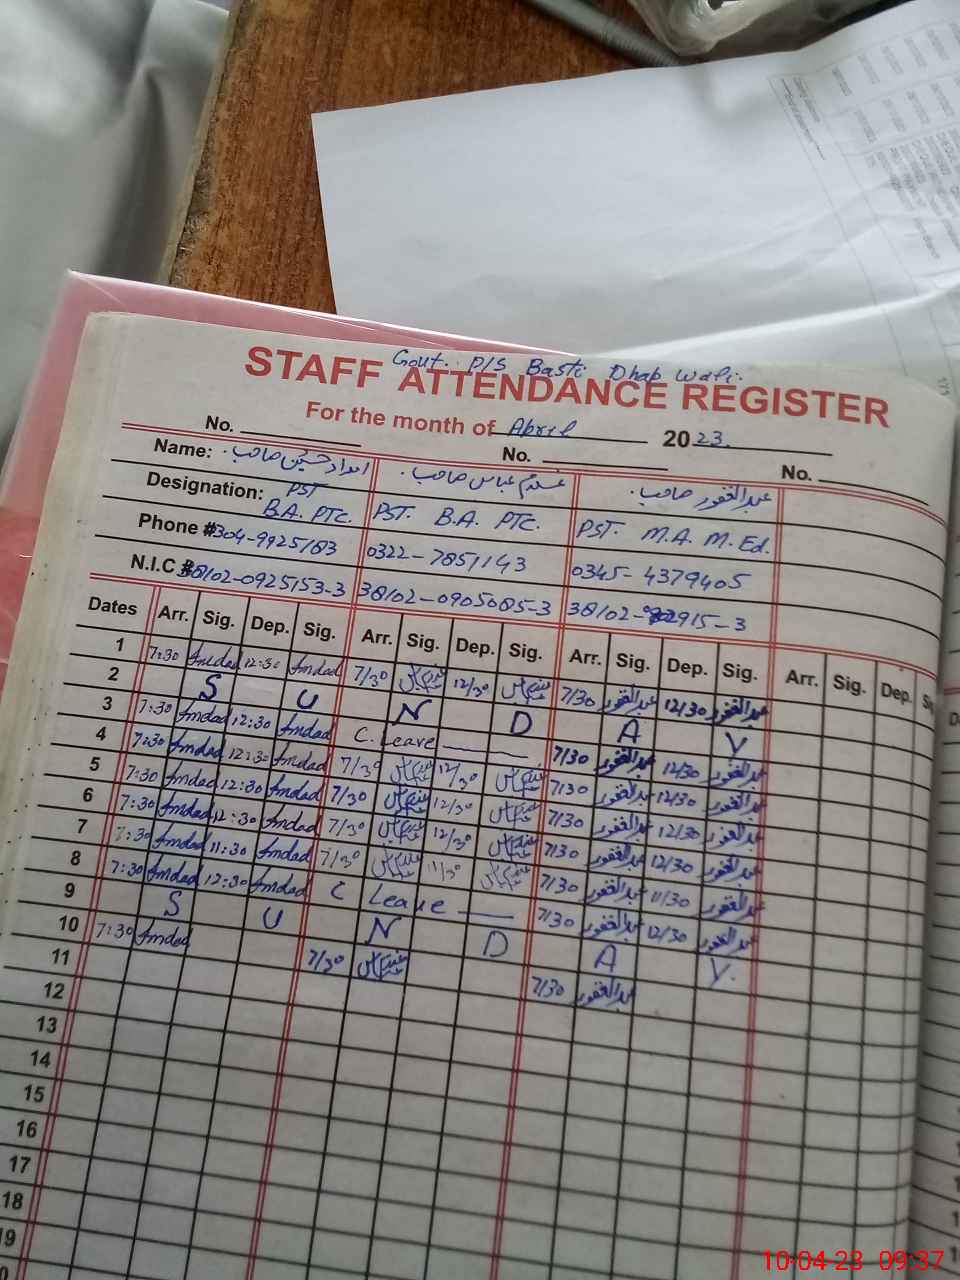 Govt. P/S Basti Dhab Wali.
STAFF ATTENDANCE REGISTER
For the month of April 2023.
No. No. No.
Name: امداد حسین صاحب عبدالغفور صاحب
Designation: PST B.A. PTC. PST. B.A. PTC. PST. M.A. M.Ed.
Phone # 304-9925183 0322-7857143 0345-4379405
N.I.C # 38102-0925153-3 38102-0905085-3 38102-
Dates Arr. Sig. Dep. Sig. Arr. Sig. Dep. Sig. Arr. Sig. Dep. Sig. Arr. Sig. Dep.
1 7:30 Amdad 12:30 Amdad 7/30 12/30 7/30 عبدالغفور 12/30 عبدالغفور
2 S U N D A Y
3 7:30 Amdad 12:30 Amdad C. Leave 7/30 عبدالغفور 12/30 عبدالغفور
4 7:30 Amdad 12:30 Amdad 7/30 12/30 7/30 عبدالغفور 12/30 عبدالغفور
5 7:30 Amdad 12:30 Amdad 7/30 12/30 7/30 عبدالغفور 12/30 عبدالغفور
6 7:30 Amdad 12:30 Amdad 7/30 12/30 7/30 عبدالغفور 12/30 عبدالغفور
7 7:30 Amdad 11:30 Amdad 7/30 11/30 7/30 عبدالغفور 11/30 عبدالغفور
8 7:30 Amdad 12:30 Amdad C Leave 7/30 عبدالغفور 12/30 عبدالغفور
9 S U N D A Y.
10 7:30 Amdad 7/30 7/30 عبدالغفور
11
12
13
14
15
16
17
18
19
10-04-23 09:37